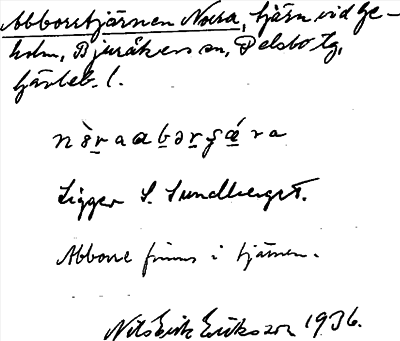 Abborrtjärnen Norra, tjärn vid Ge-
holm, Bjuråkers sn, Delsbo tg,
Gävleb. l.
nòraabərʂæ̀ra
Ligger S. Sundbergst.
Abborre finns i tjärnen.
Nils Erik Eriksson 1936.